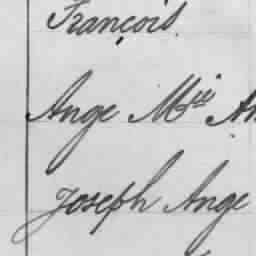 François.
Ange Mie An
Joseph Ange